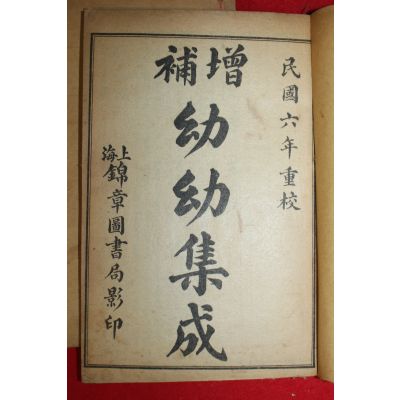 民國六年重校
增補
幼幼集成
上海錦章圖書局影印